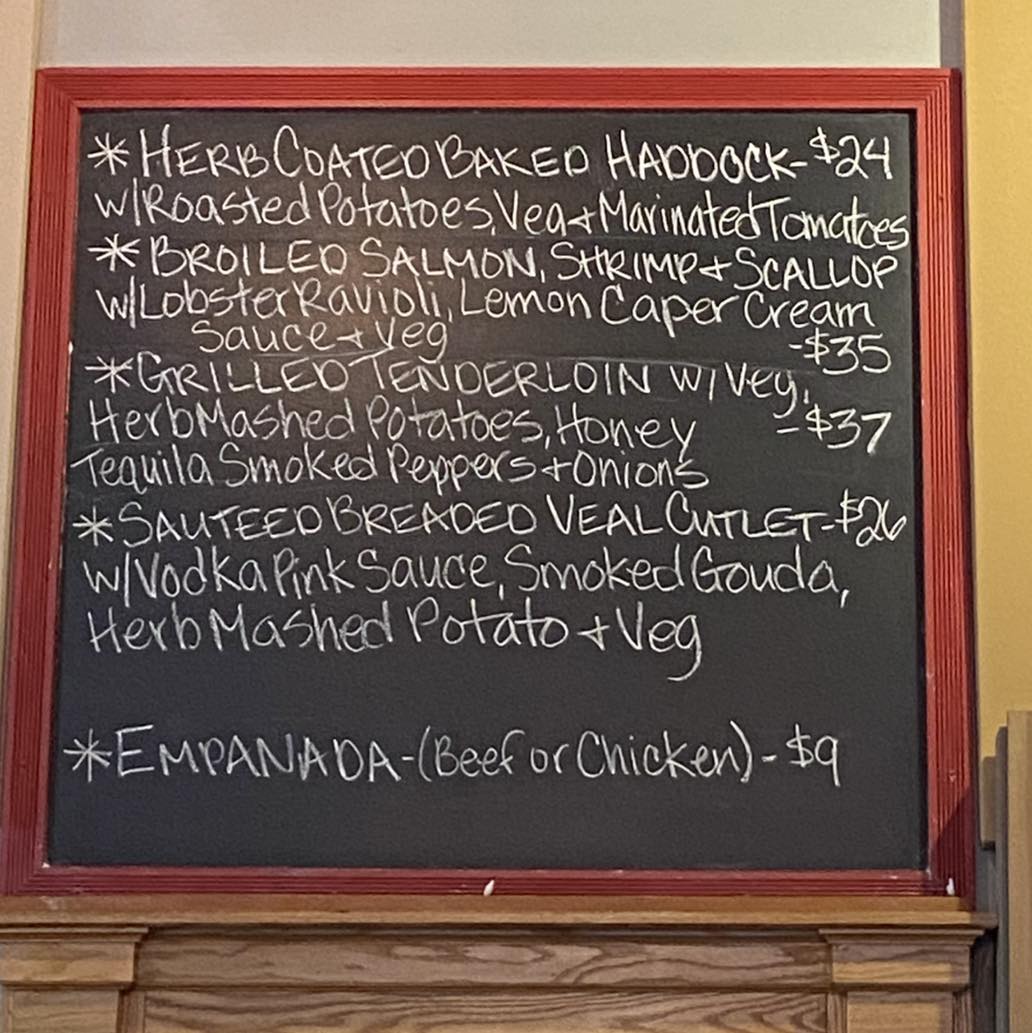 * HERB COATED BAKED HADDOCK - $24
w/ Roasted Potatoes, Veg + Marinated Tomatoes
* BROILED SALMON, SHRIMP + SCALLOP
w/ Lobster Ravioli, Lemon Caper Cream
Sauce + Veg - $35
* GRILLED TENDERLOIN w/ Veg,
Herb Mashed Potatoes, Honey - $37
Tequila Smoked Peppers + Onions
* SAUTEED BREADED VEAL CUTLET - $26
w/ Vodka Pink Sauce, Smoked Gouda,
Herb Mashed Potato + Veg
* EMPANADA - (Beef or Chicken) - $9